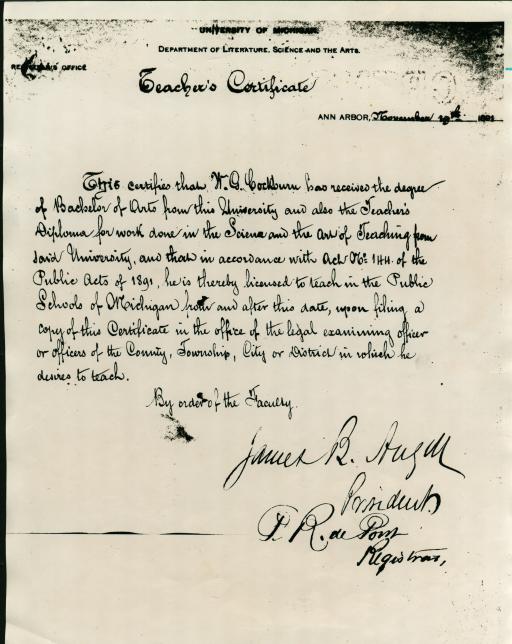 UNIVERSITY OF MICHIGAN
DEPARTMENT OF LITERATURE, SCIENCE AND THE ARTS.
REGISTRAR'S OFFICE
Teacher's Certificate
ANN ARBOR, November
This certifies that W. G. Cockburn has received the degree
of Bachelor of Arts from this University and also the Teacher's
Diploma for work done in the Science and the Art of Teaching from
said University, and that in accordance with Act No. 144 of the
Public Acts of 1891, he is thereby licensed to teach in the Public
Schools of Michigan from and after this date, upon filing a
copy of this Certificate in the office of the legal examining officer
or officers of the County, Township, City or District in which he
desires to teach.
By order of the Faculty.
James B. Angell
President
P. R. de Pont
Registrar,